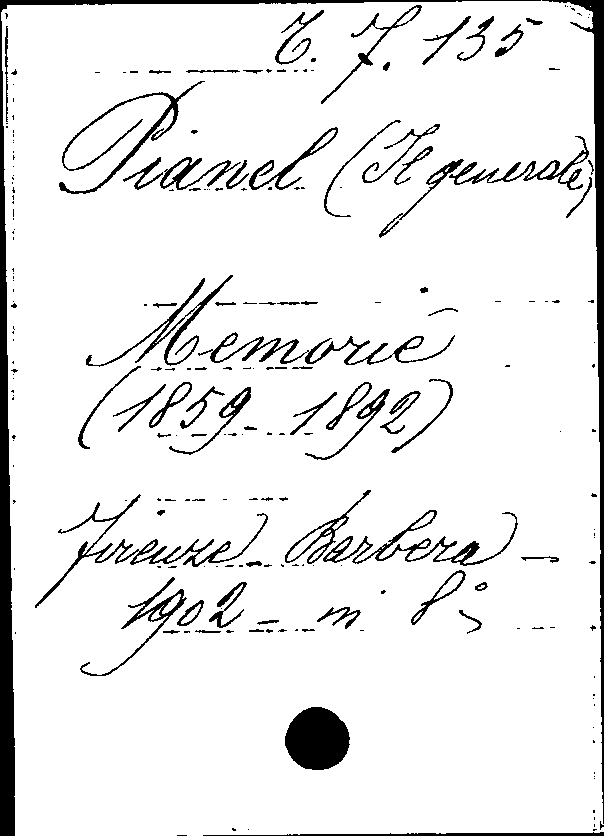 6. 7. 135
Pianel (Il generale)
Memorie
(1859 - 1892)
Firenze - Barbera -
1902 - in 8°